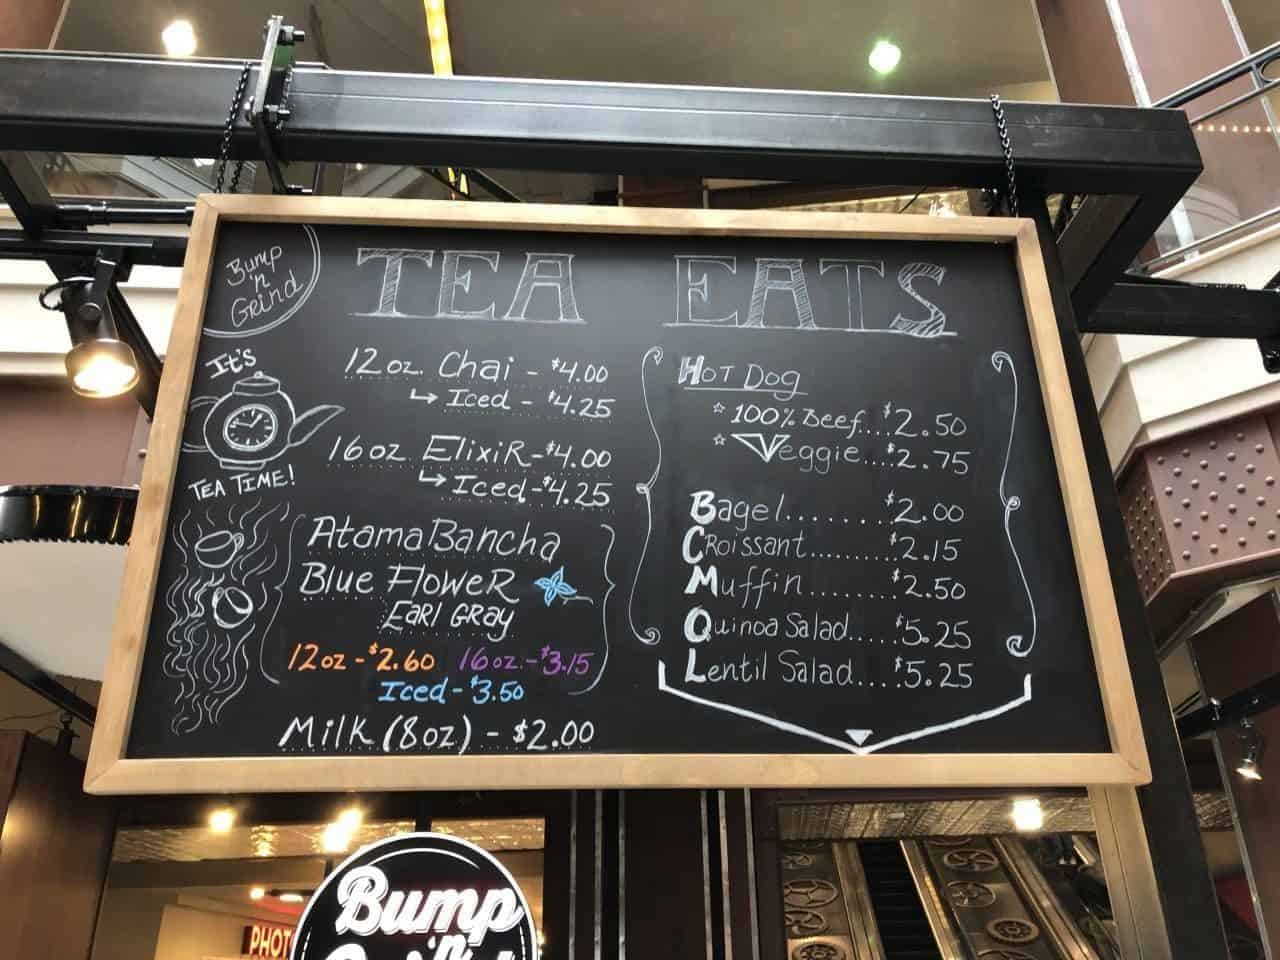 Bump
'n'
Grind
It's
TEA TIME!
TEA
12 oz. Chai - $4.00
↳ Iced - $4.25
16 oz ElixiR - $4.00
↳ Iced - $4.25
AtamaBancha
Blue FloweR
EaRl GRay
12oz - $2.60 16oz. - $3.15
Iced - $3.50
Milk (8oz) - $2.00
EATS
HOT DOG
☆ 100% Beef...$2.50
☆ Veggie....$2.75
Bagel........$2.00
CRoissant.........$2.15
Muffin........$2.50
Quinoa Salad.....$5.25
Lentil Salad....$5.25
Bump
'n'
PHOT